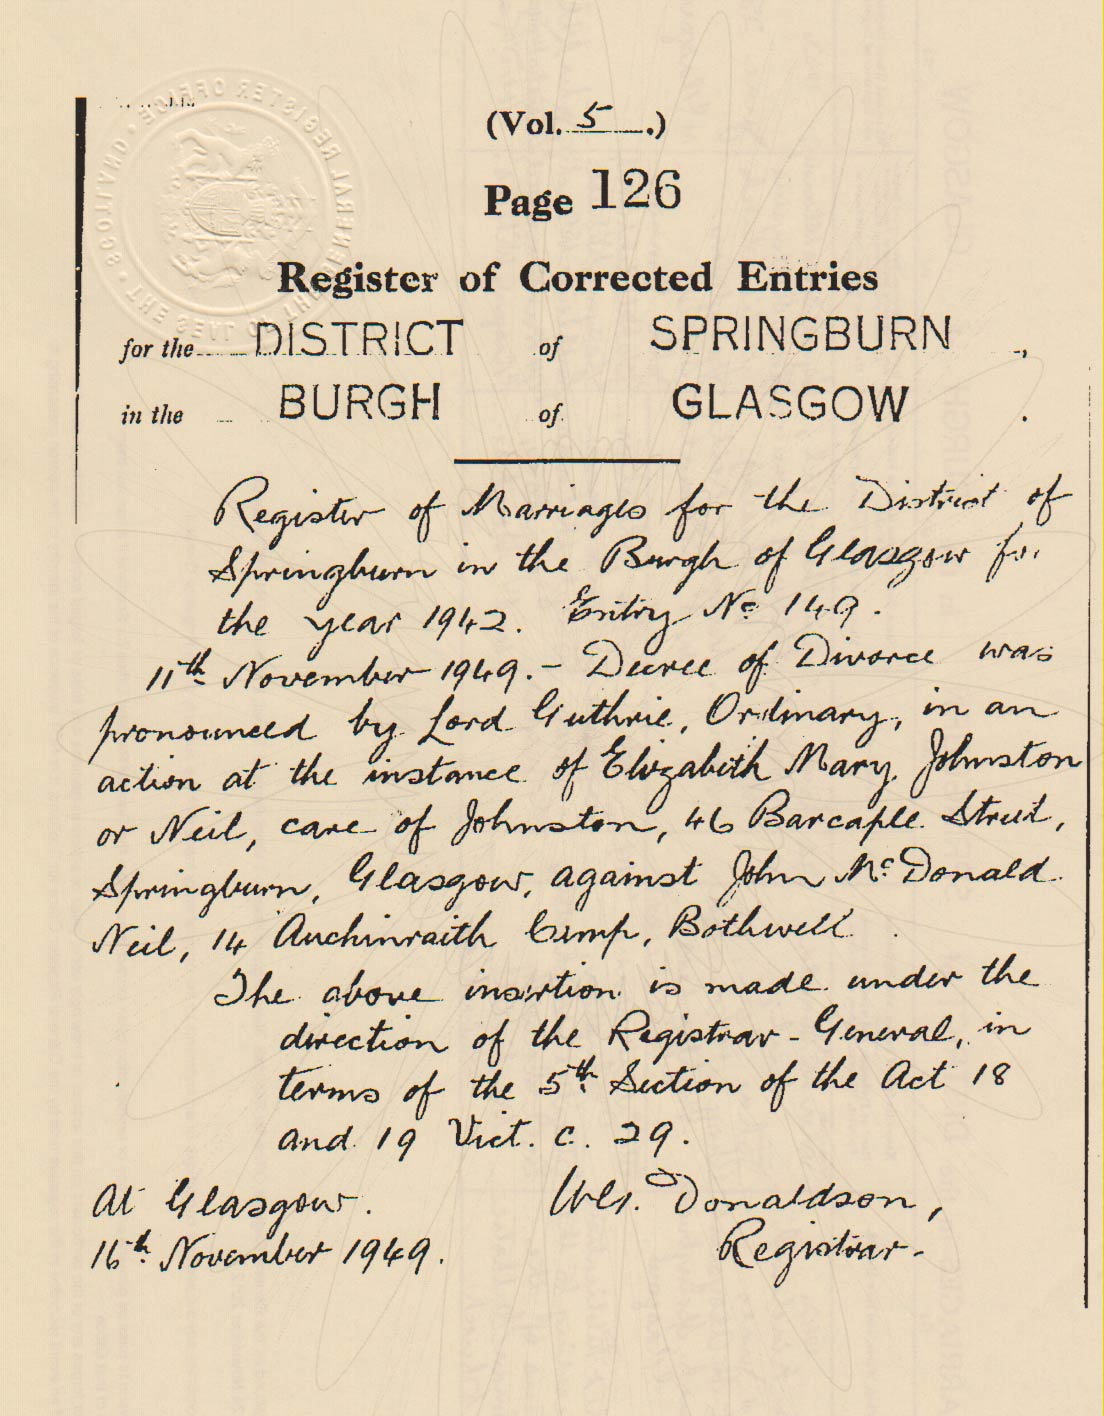 (Vol. 5 .)
Page 126
Register of Corrected Entries
for the DISTRICT of SPRINGBURN ,
in the BURGH of GLASGOW .
Register of Marriages for the District of
Springburn in the Burgh of Glasgow for
the year 1942. Entry No 149.
11th November 1949. - Decree of Divorce was
pronounced by Lord Guthrie, Ordinary, in an
action at the instance of Elizabeth Mary Johnston
or Neil, care of Johnston, 46 Barcaple Street,
Springburn, Glasgow, against John McDonald
Neil, 14 Auchinraith Camp, Bothwell.
The above insertion is made under the
direction of the Registrar-General, in
terms of the 5th Section of the Act 18
and 19 Vict. c. 29.
At Glasgow.
16th November 1949.
Donaldson,
Registrar.